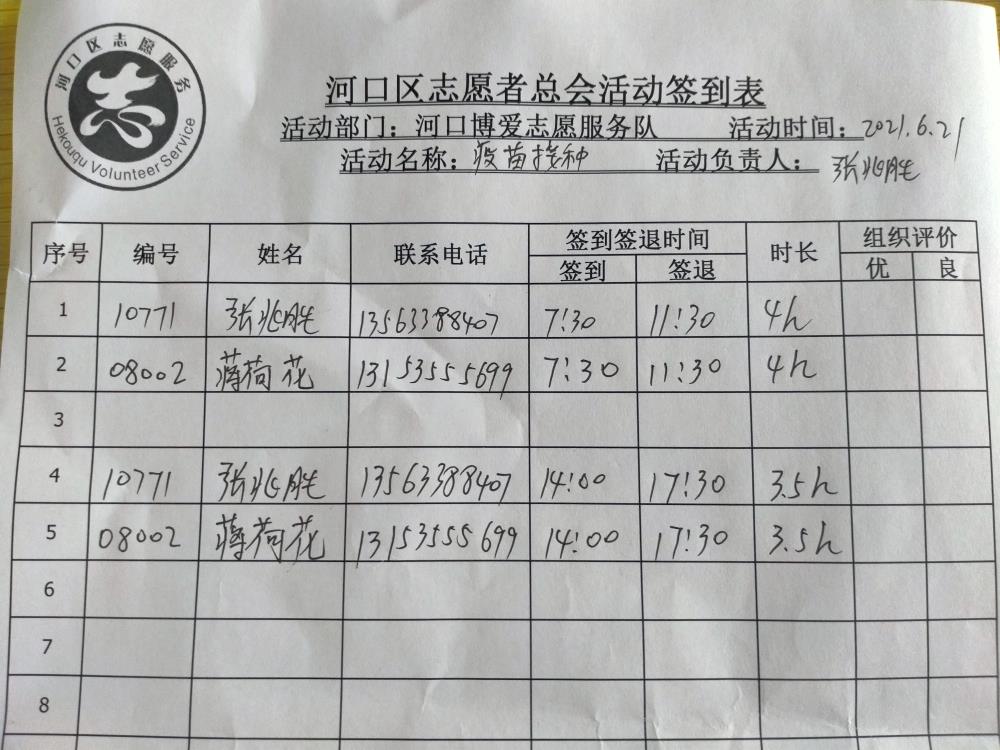 河口区志愿服务
Hekouqu Volunteer Service
河口区志愿者总会活动签到表
活动部门：河口博爱志愿服务队 活动时间：2021.6.21
活动名称：疫苗接种 活动负责人：张兆胜
序号 编号 姓名 联系电话 签到签退时间 时长 组织评价
签到 签退 优 良
1 10771 张兆胜 13563388407 7:30 11:30 4h
2 08002 蒋荷花 13153555699 7:30 11:30 4h
3
4 10771 张兆胜 13563388407 14:00 17:30 3.5h
5 08002 蒋荷花 13153555699 14:00 17:30 3.5h
6
7
8